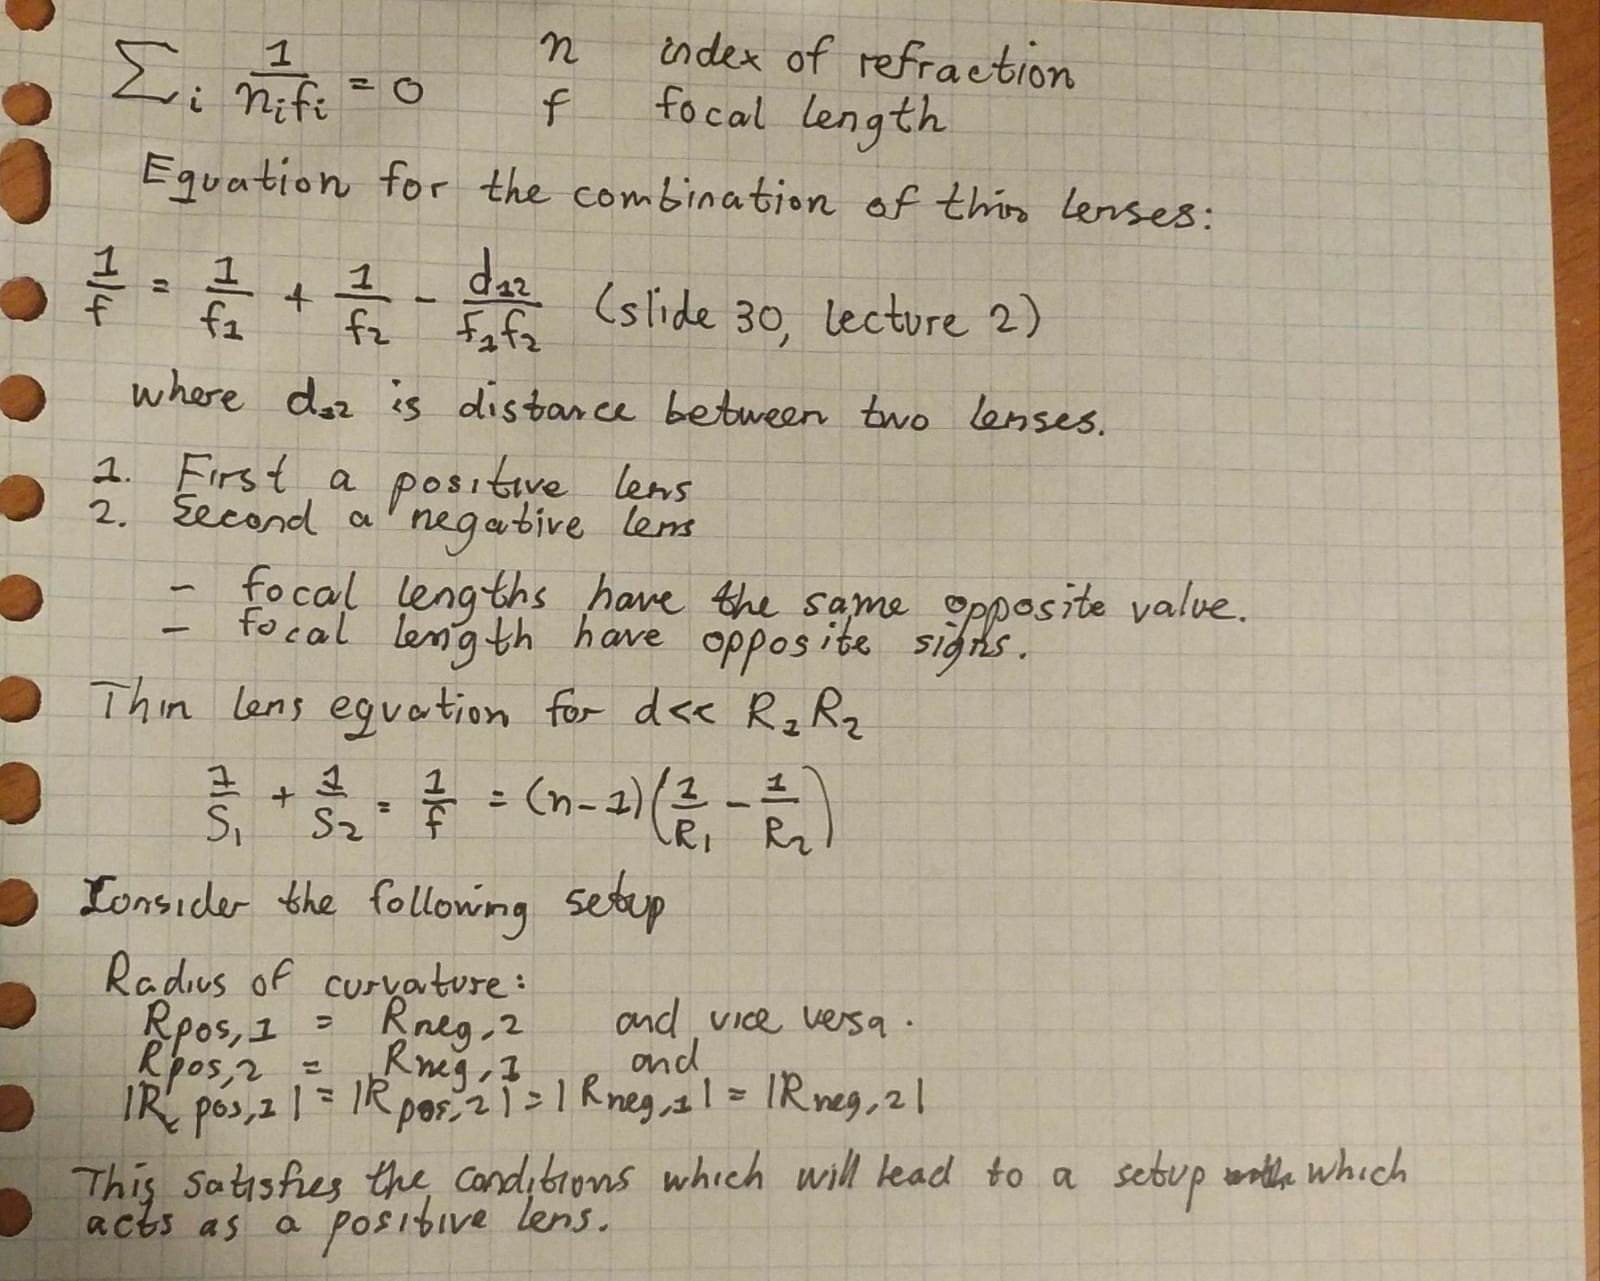 ∑i 1/(nifi) = 0 n index of refraction
f focal length
Equation for the combination of thin lenses:
1/f = 1/f1 + 1/f2 - d12/(f1f2) (slide 30, lecture 2)
where d12 is distance between two lenses.
1. First a positive lens
2. Second a negative lens
- focal lengths have the same opposite value.
- focal length have opposite signs.
Thin lens equation for d<< R2R2
1/S1 + 1/S2 = 1/f = (n-1)(1/R1 - 1/R2)
Consider the following setup
Radius of curvature:
Rpos,1 = Rneg,2 and vice versa.
Rpos,2 = Rneg,1 and
|Rpos,1| = |Rpos,2| = |Rneg,1| = |Rneg,2|
This satisfies the conditions which will lead to a setup which
acts as a positive lens.